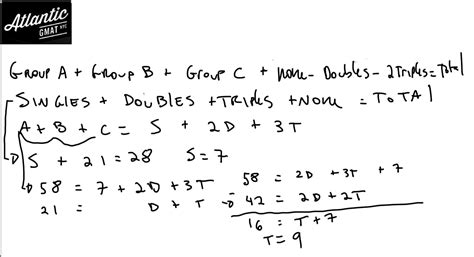 Atlantic
GMAT NYC
GROUP A + GROUP B + GROUP C + NONE - DOUBLES - 2TRIPLES = TOTAL
SINGLES + DOUBLES + TRIPLES + NONE = TOTAL
A + B + C = S + 2D + 3T
S + 21 = 28 S = 7
58 = 7 + 2D + 3T
21 = D + T
58 = 2D + 3T + 7
- 42 = 2D + 2T
16 = T + 7
T = 9